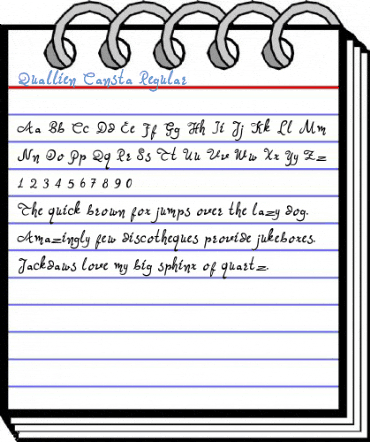 Quallien Cansta Regular
Aa Bb Cc Dd Ee Ff Gg Hh Ii Jj Kk Ll Mm
Nn Oo Pp Qq Rr Ss Tt Uu Vv Ww Xx Yy Zz
1 2 3 4 5 6 7 8 9 0
The quick brown fox jumps over the lazy dog.
Amazingly few discotheques provide jukeboxes.
Jackdaws love my big sphinx of quartz.